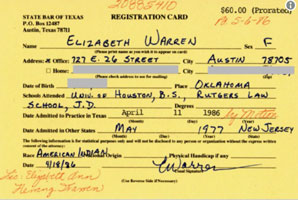 20885410
$60.00 (Prorated)
PD 5-6-86
STATE BAR OF TEXAS
P.O. Box 12487
Austin, Texas 78711
REGISTRATION CARD
Name ELIZABETH WARREN Sex F
(Please print name as you wish it to appear on card)
Address: Office: 727 E. 26 STREET City AUSTIN 78705
Home: City
(Please check address to be used for mailing)
Date of Birth Place OKLAHOMA
School Attended UNIV. OF HOUSTON, B.S. RUTGERS LAW
SCHOOL, J.D. Degrees
Date Admitted to Practice in Texas April 11 1986 by Motion
Date Admitted in Other States MAY 1977 NEW JERSEY
The following information is for statistical purposes only and will not be disclosed to any person or organization without the express written consent of the attorney.
Race AMERICAN INDIAN National Origin Physical Handicap if any
Date 4/18/86 EWarren
(Usual Signature)
(Use Reverse Side if Necessary)
Lic: Elizabeth Ann
Herring Warren